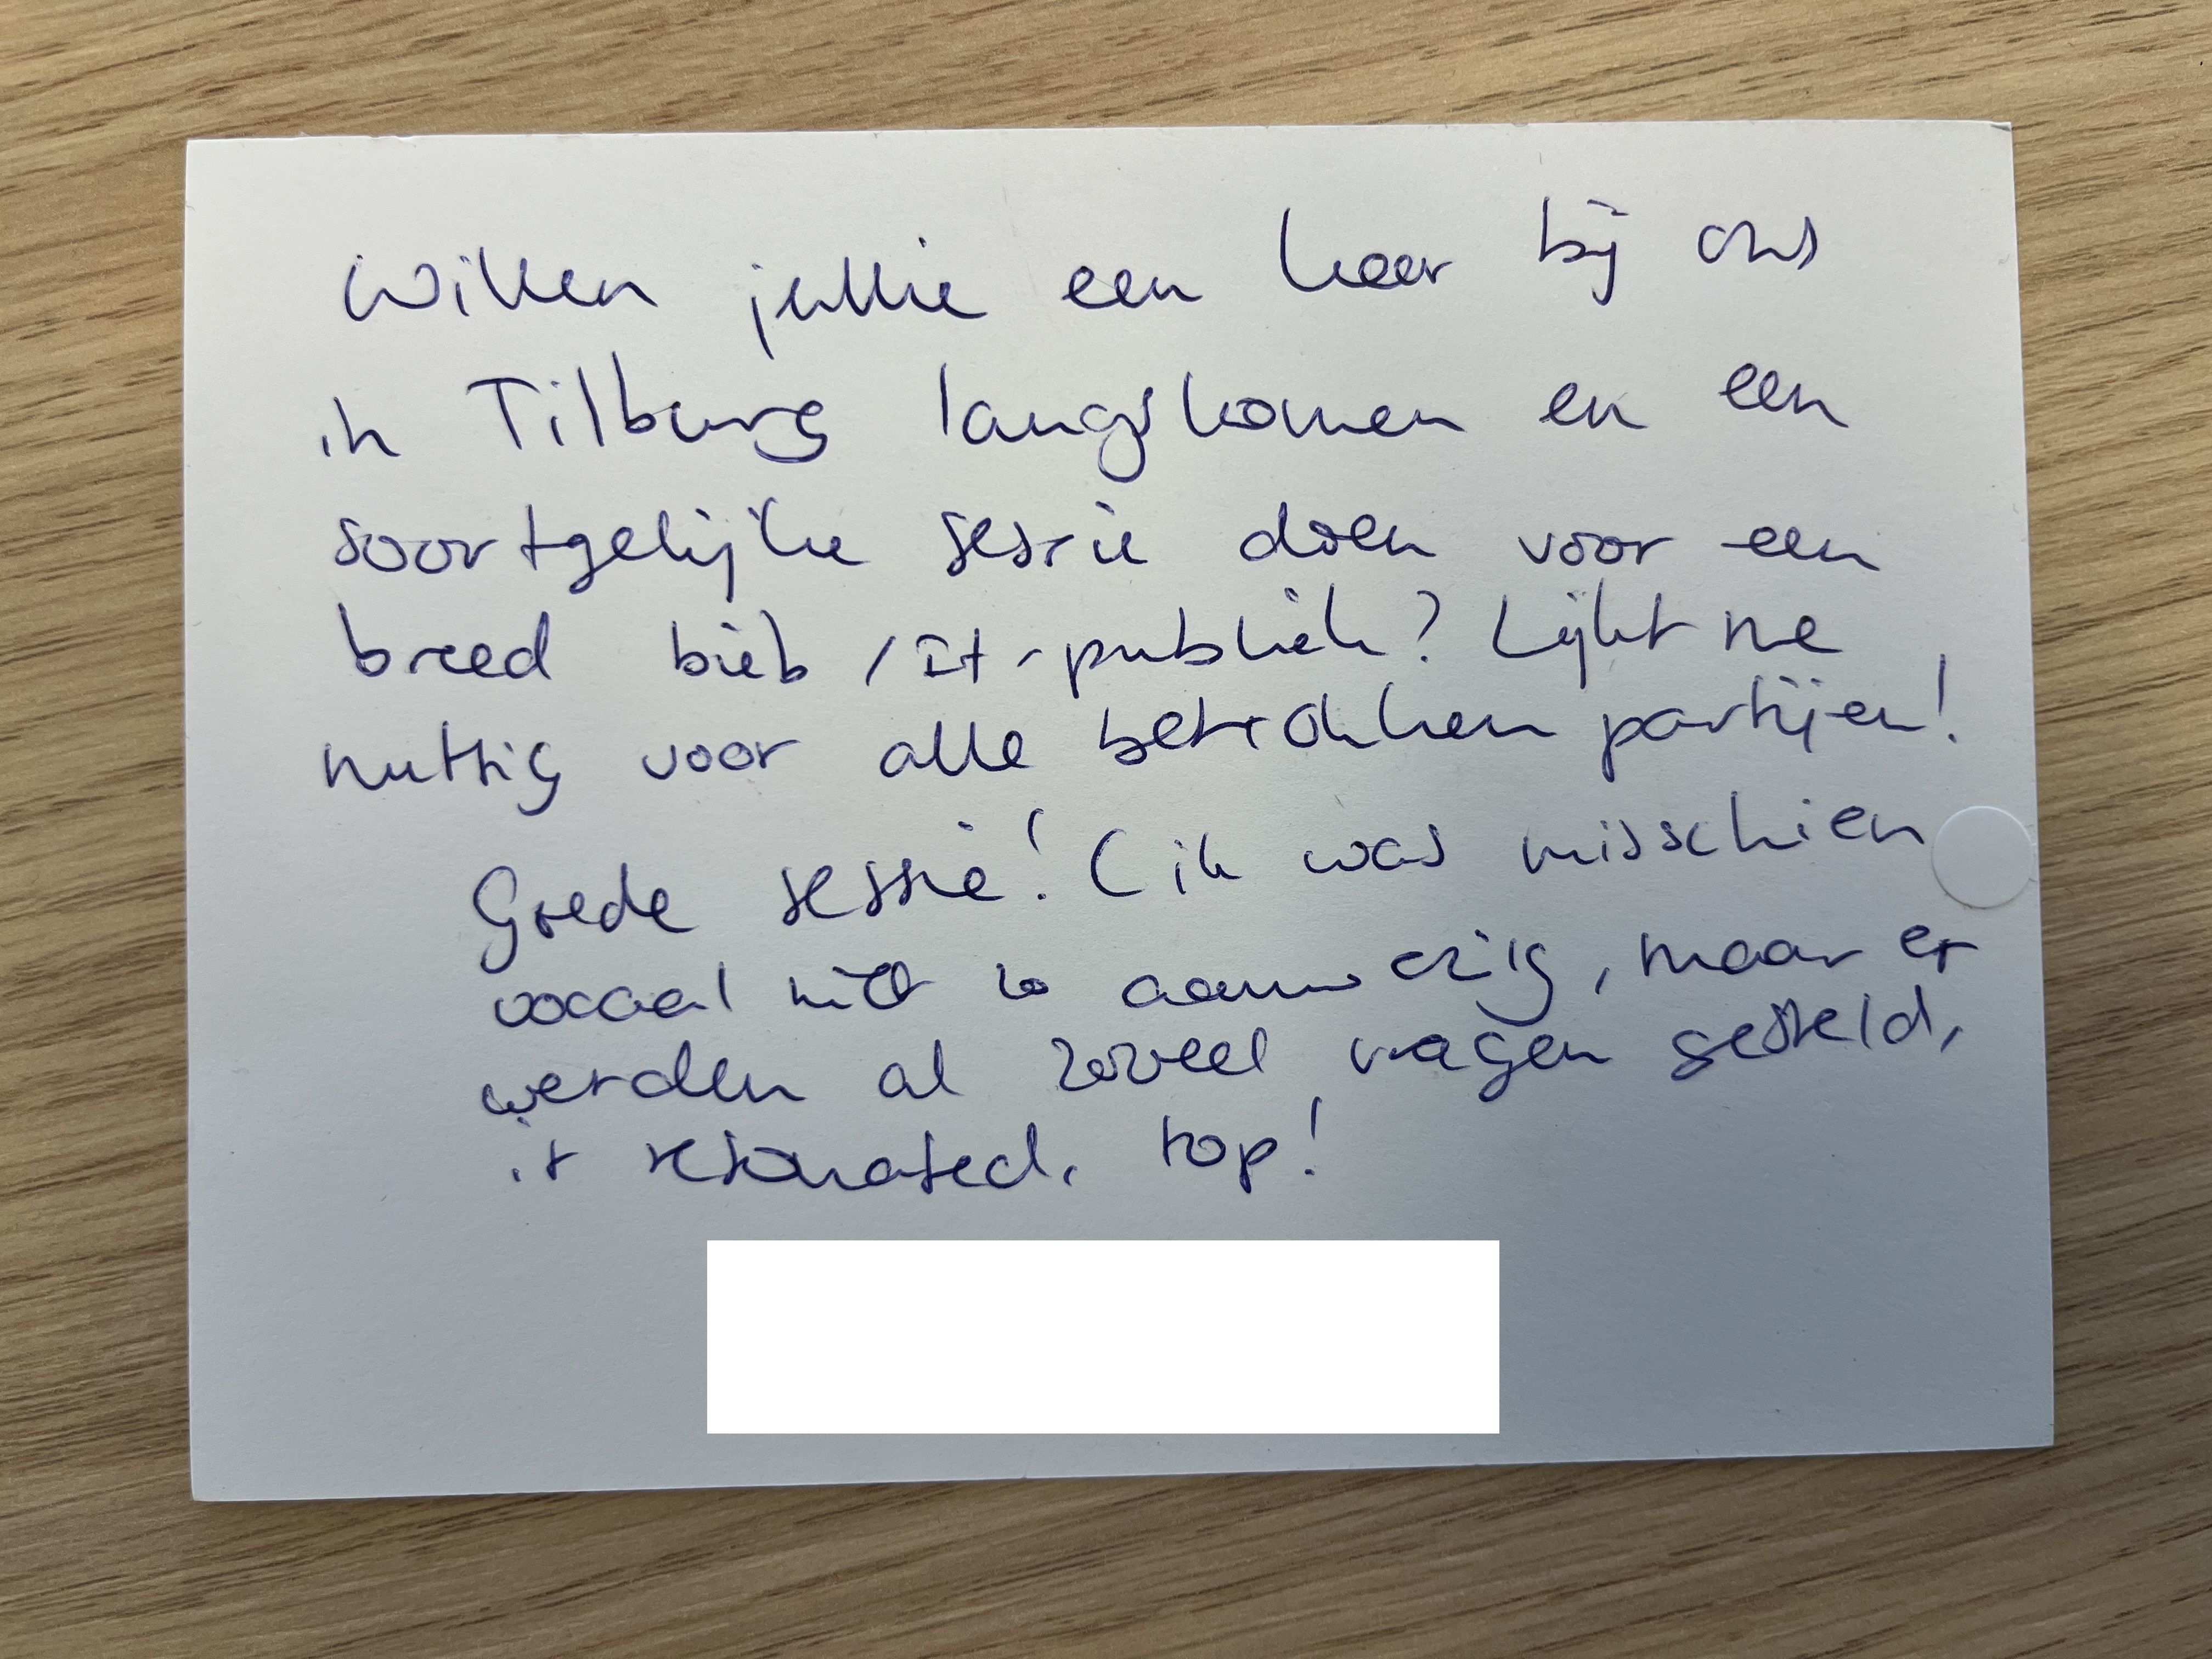 Willen jullie een keer bij ons
in Tilburg langskomen en een
soortgelijke sessie doen voor een
breed bieb/it-publiek? Lijkt me
nuttig voor alle betrokken partijen!
Goede sessie! (ik was misschien
vocaal niet zo aanwezig, maar er
werden al zoveel vragen gesteld,
it resonated. top!